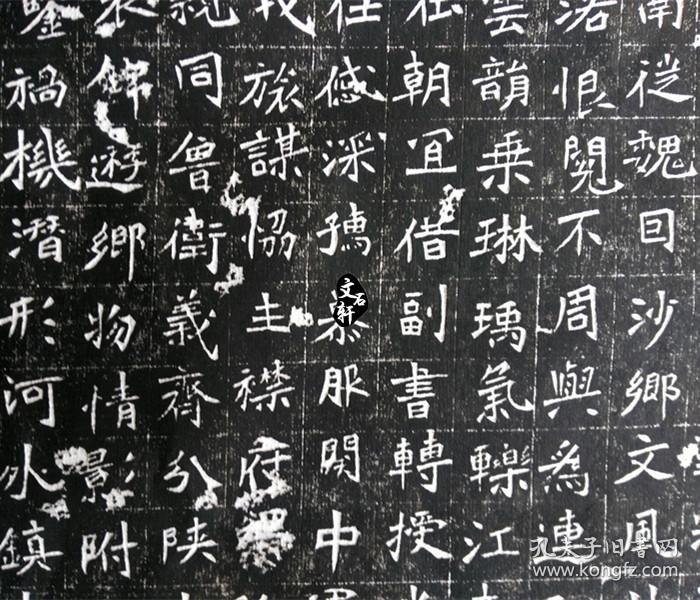 南從魏囙沙鄉文風
恨閱不周與為連
雲韻乗琳瑀氣轢江
在朝宜借副書轉授
感深孺慕服闋中
我旅謀恊主襟府
親同魯衛義齊分陝
錦遊鄉物情影附
鑒禍機潛形河冰鎮
文石轩
孔夫子旧書网
www.kongfz.com